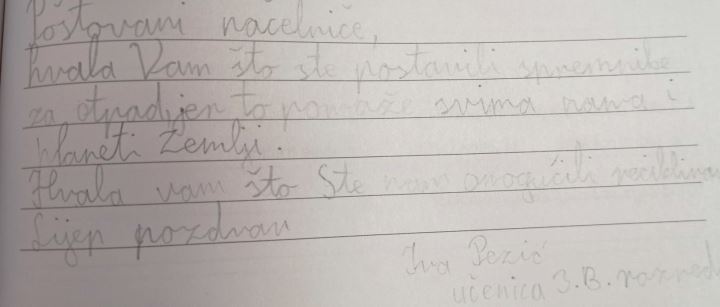 Poštovani načelniče,
hvala Vam što ste postavili spremnike
za otpad jer to pomaže svima nama i
planeti Zemlji.
Hvala vam što Ste nam omogućili
Lijep pozdrav
Iva Pezić
učenica 3.B. razred